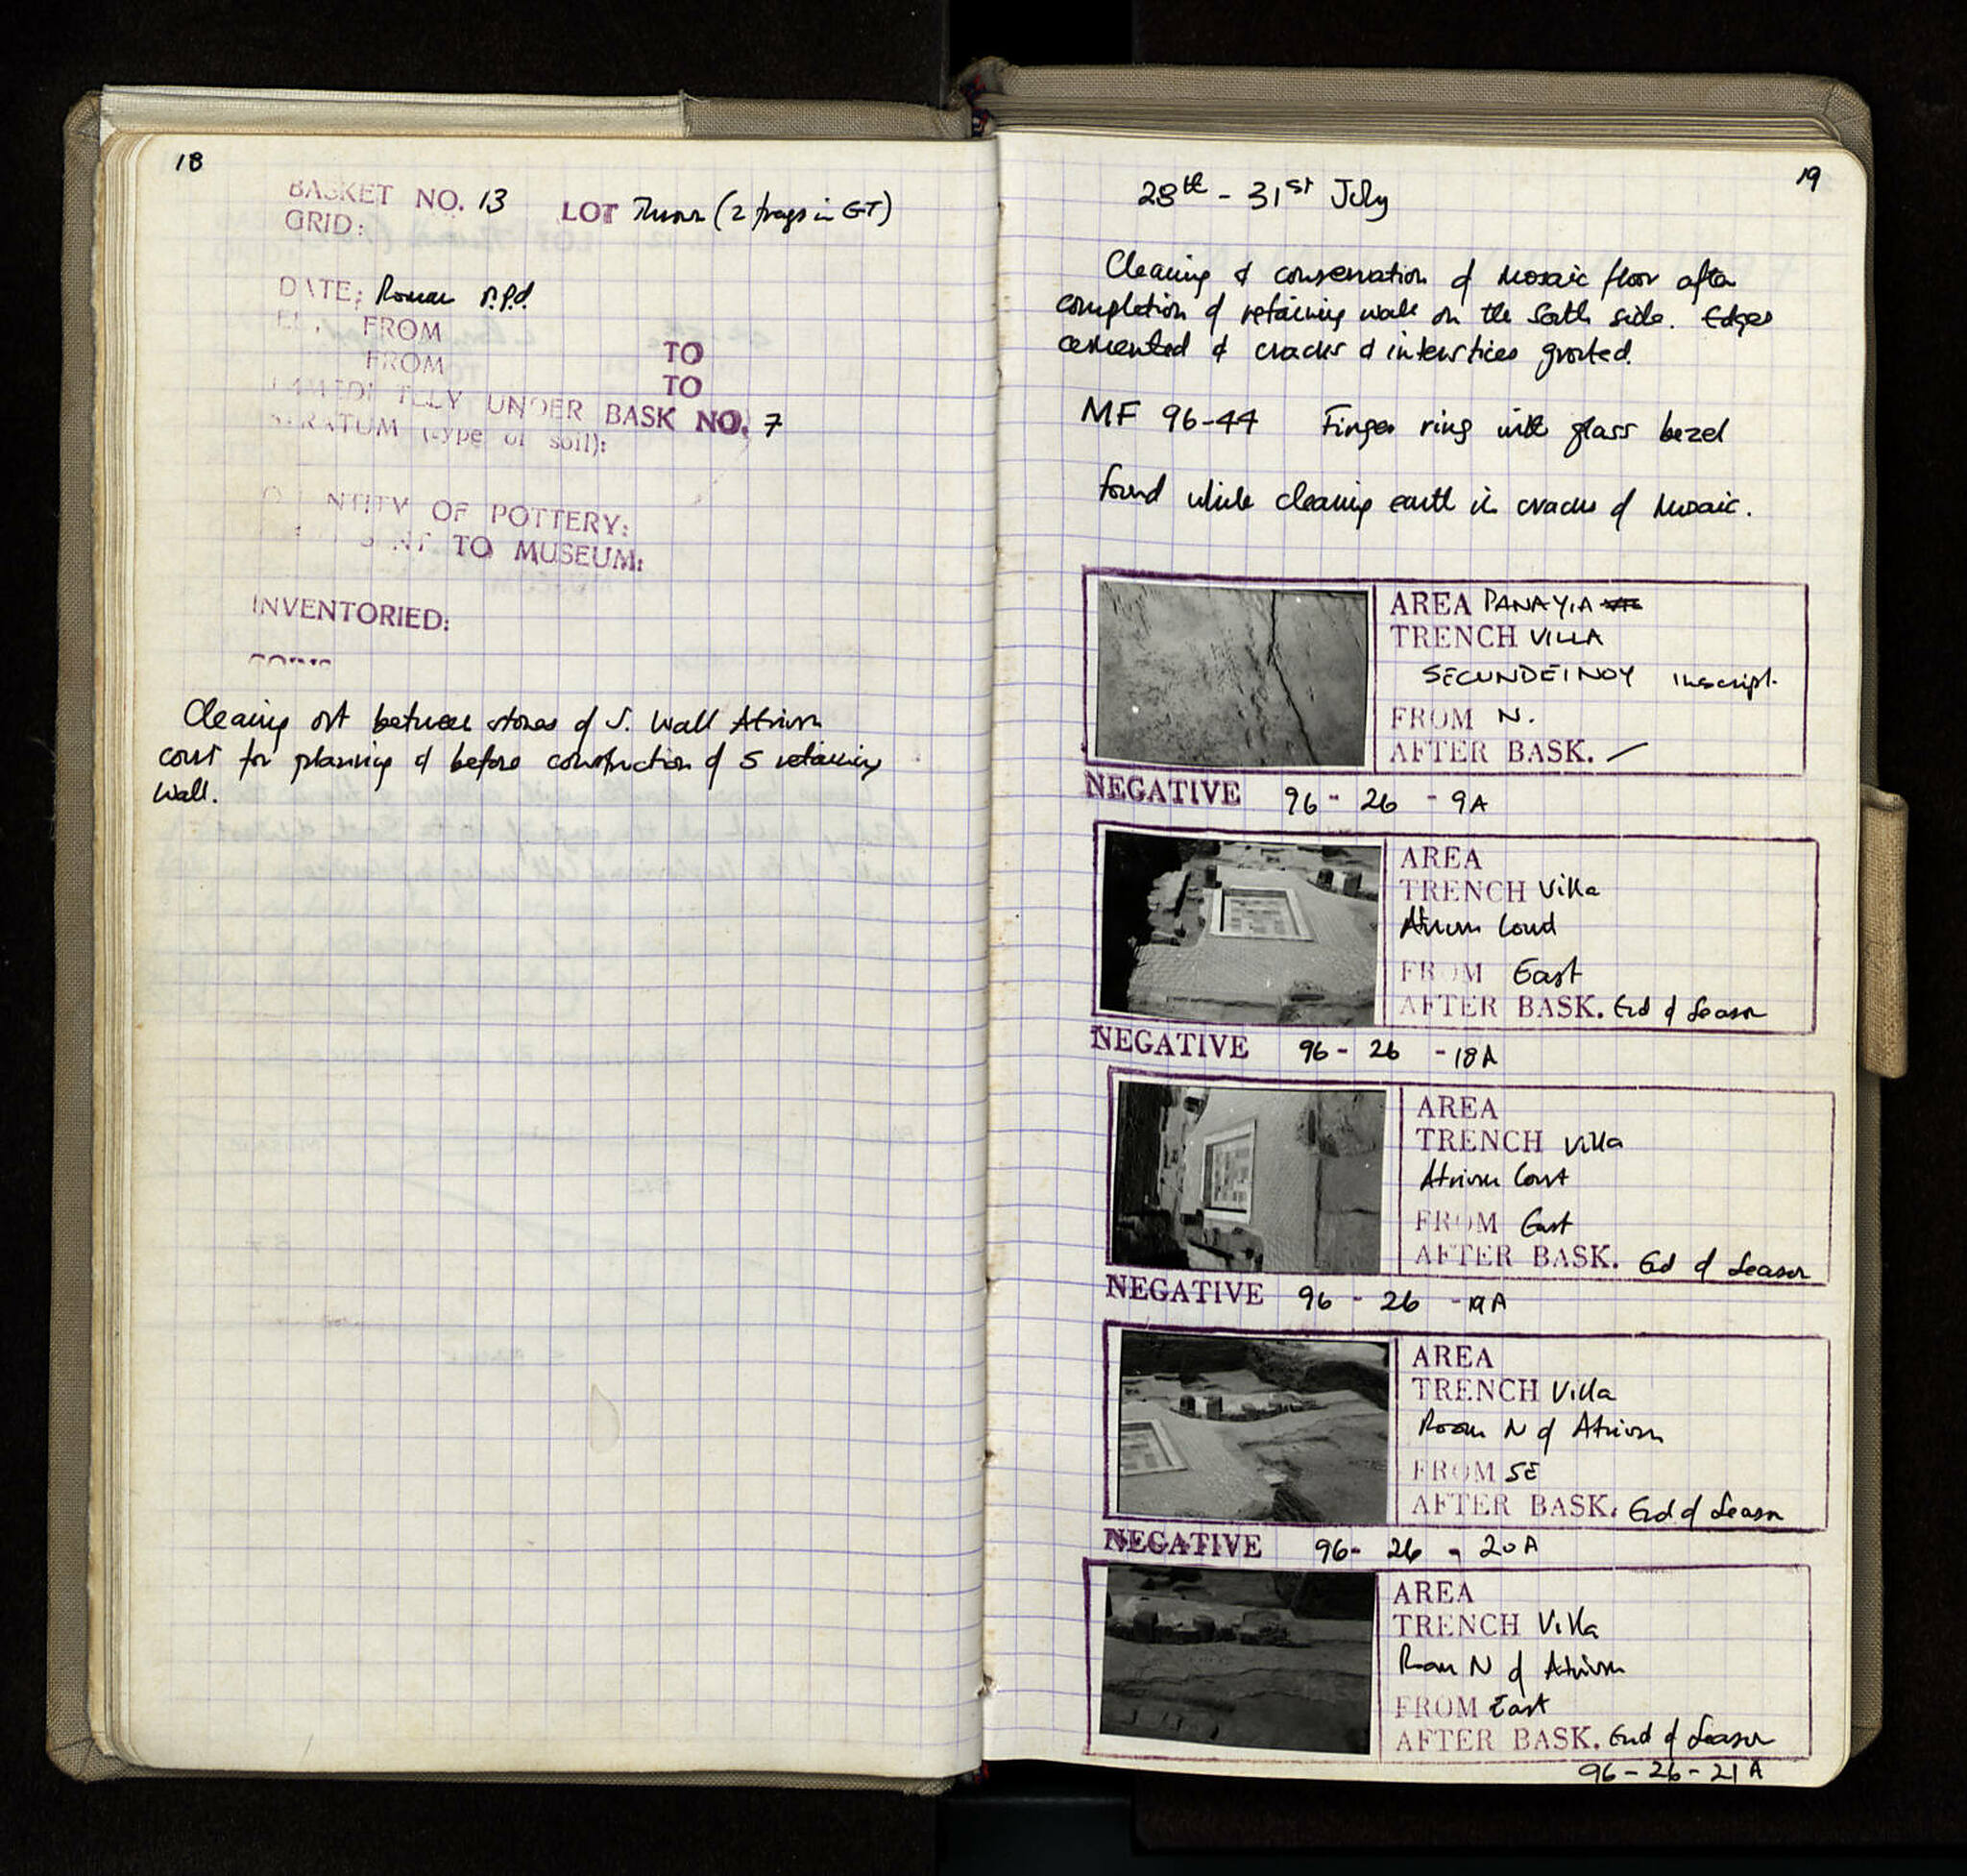 18
BASKET NO. 13 LOT Thrown (2 frags in GT)
GRID:
DATE: Roman p.p.d.
EL. FROM TO
FROM TO
IMMEDIATELY UNDER BASK NO. 7
STRATUM (type of soil):
QUANTITY OF POTTERY:
SENT TO MUSEUM:
INVENTORIED:
COINS
Cleaning out between stones of S. Wall Atrium
court for planning & before construction of S retaining
Wall.
19
28th - 31st July
Cleaning & conservation of Mosaic floor after
completion of retaining wall on the South side. Edges
cemented & cracks & interstices grouted.
MF 96-44 Finger ring with glass bezel
found while cleaning earth in cracks of Mosaic.
AREA PANAYIA
TRENCH VILLA
SECUNDEINOY Inscript.
FROM N.
AFTER BASK. /
NEGATIVE 96 - 26 - 9A
AREA
TRENCH Villa
Atrium Court
FROM East
AFTER BASK. End of Season
NEGATIVE 96 - 26 - 18A
AREA
TRENCH Villa
Atrium Court
FROM East
AFTER BASK. End of Season
NEGATIVE 96 - 26 - 19A
AREA
TRENCH Villa
Room N of Atrium
FROM SE
AFTER BASK. End of Season
NEGATIVE 96 - 26 - 20A
AREA
TRENCH Villa
Room N of Atrium
FROM East
AFTER BASK. End of Season
96 - 26 - 21A